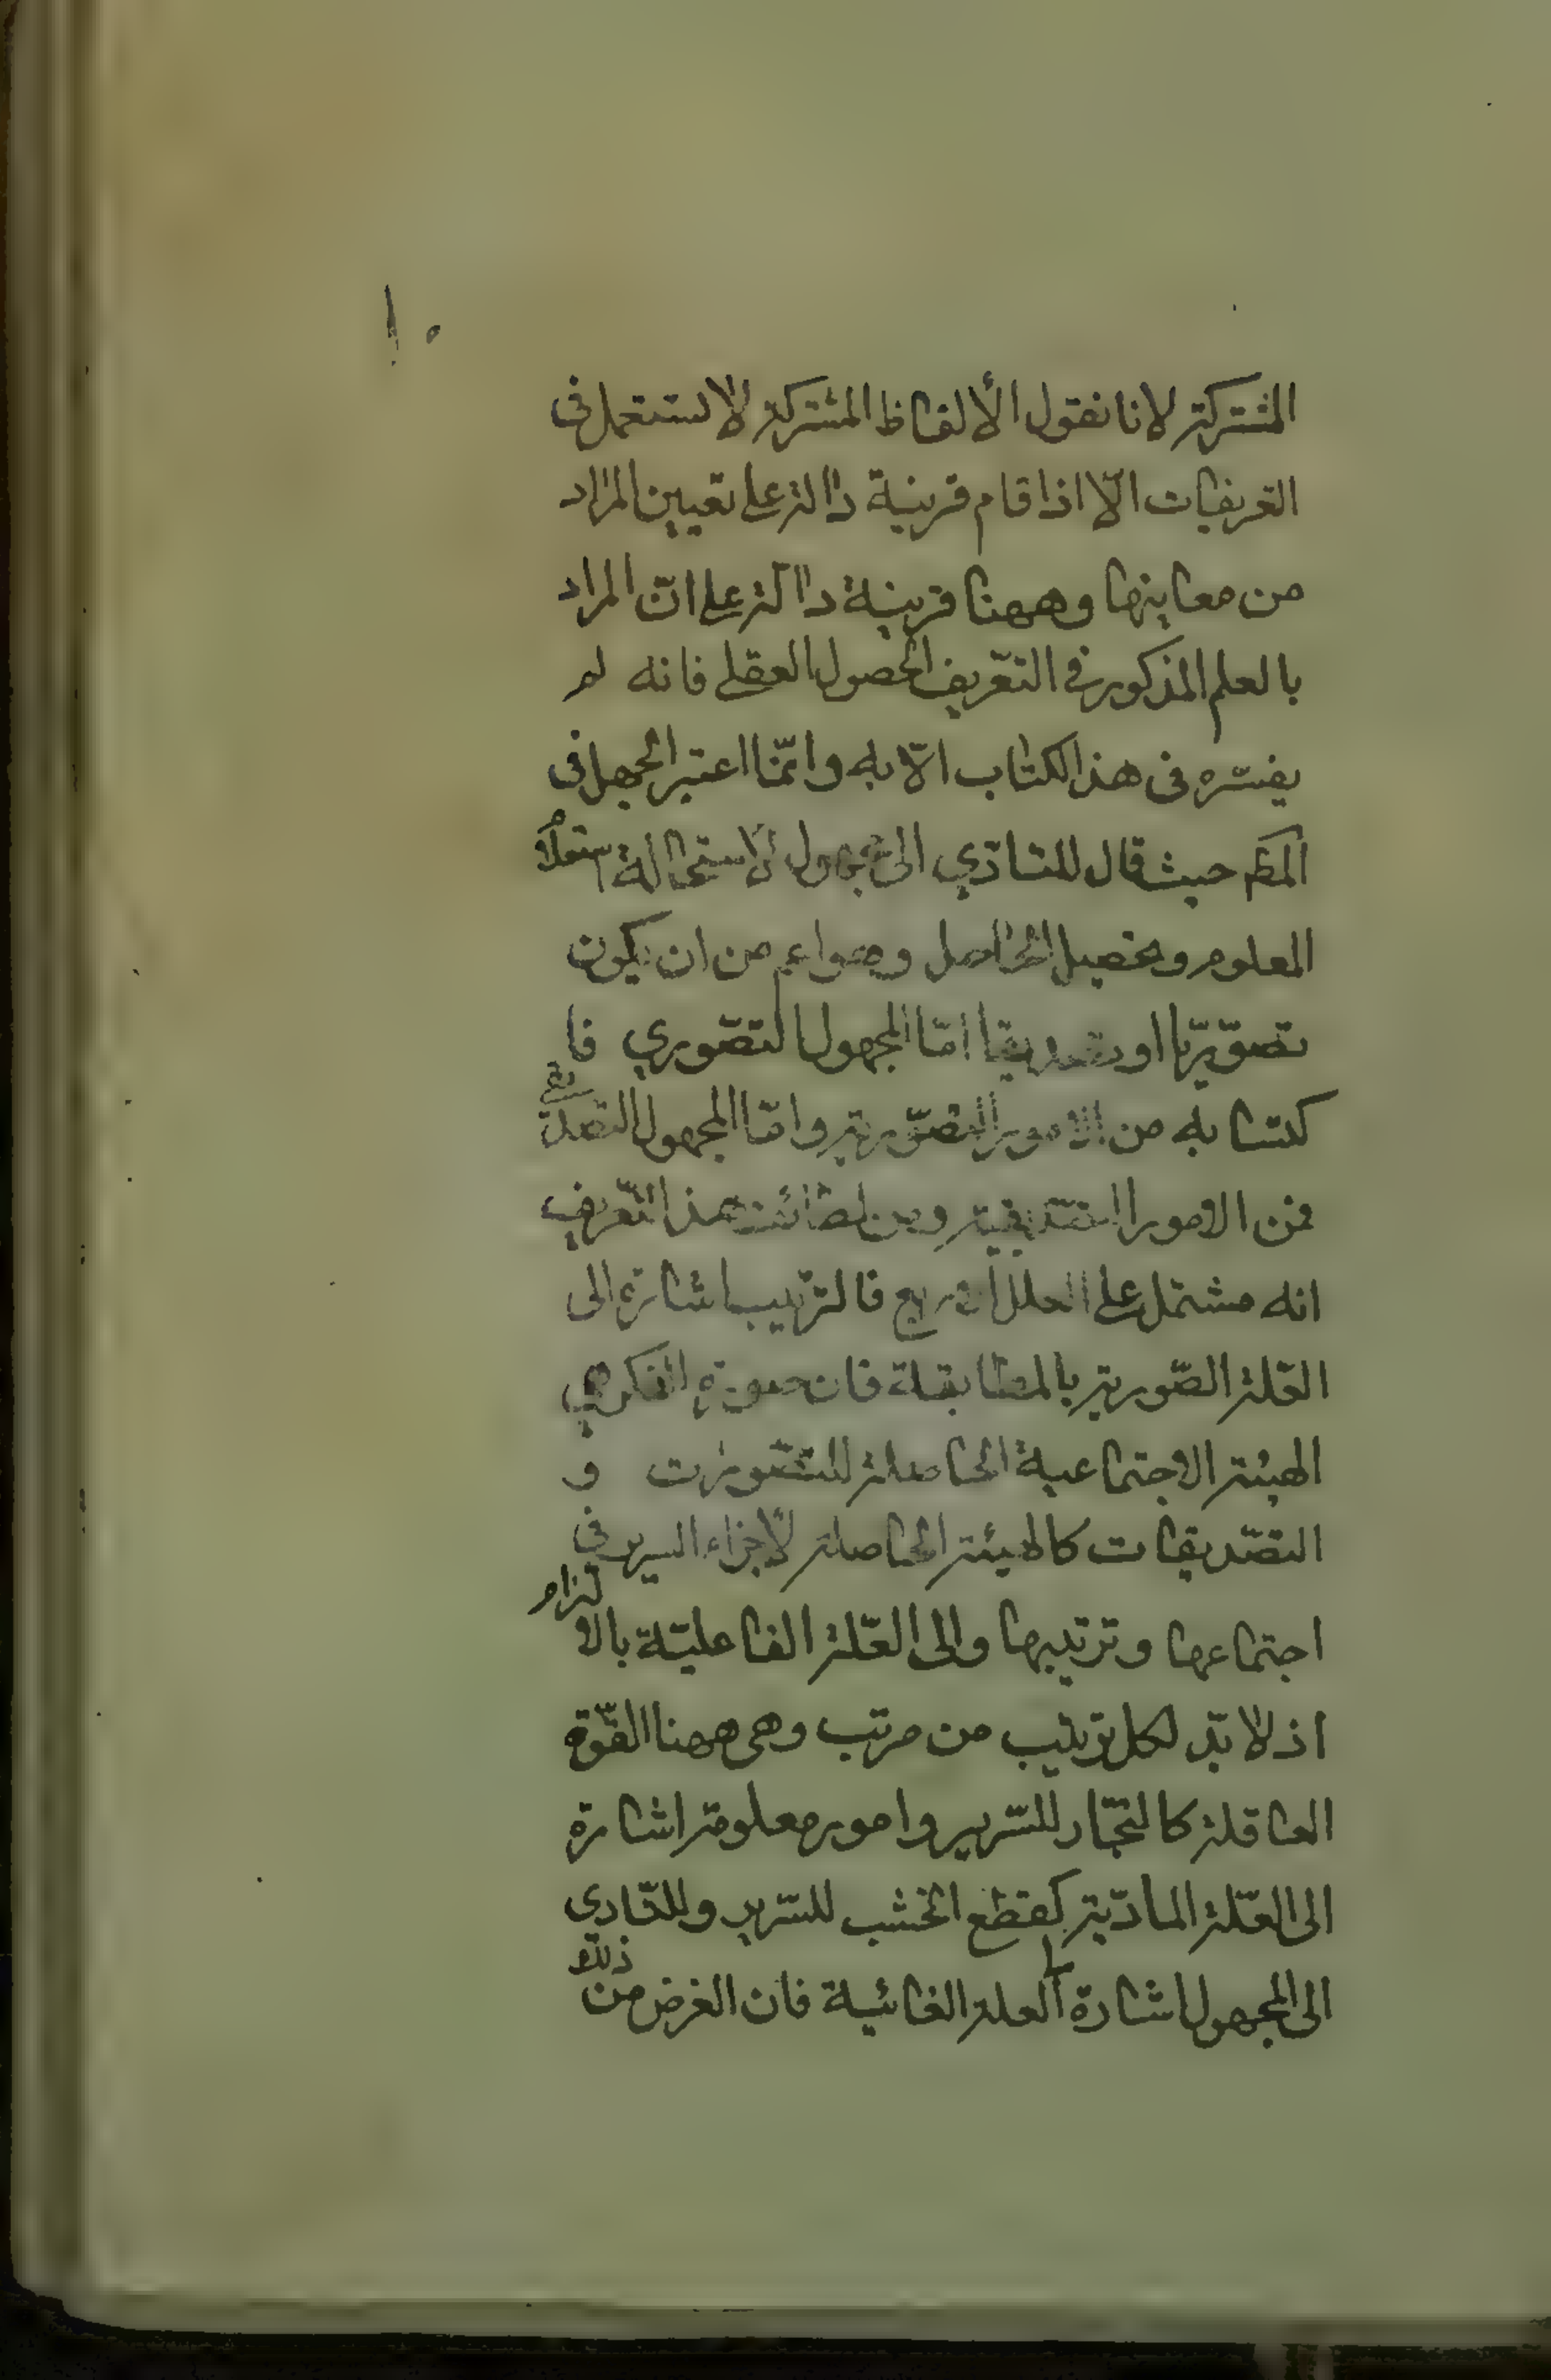 ١٠
المشتركة لانا نقول الألفاظ المشتركة لا تستعمل فى
التعريفات الّا اذا قام قرينة دالة على تعيين المراد
من معاينها وههنا قرينة دالة على انّ المراد
بالعلم المذكور فى التعّريف الحصول العقلى فانه لم
يفسّره فى هذا الكتاب الّا به وانّما اعتبر الجهل فى
المط حيث قال للتادّي الى مجهول لاستحالة استعلام
المعلوم وتحصيل الحاصل وهو اعم من ان يكون
تصوّريّا او تصديقيا امّا المجهول التصّوري فا
كتسابه من الامور التصوّرية وامّا المجهول التصديقى
فمن الامور التصديقية ومن لطائف هذا التّعريف
انه مشتمل على العلل الاربع فالترتيب اشارة الى
العّلة الصّورية بالمطابقة فان صورة الفكر هي
الهيئة الاجتماعية الحاصلة للتصّورات و
التصّديقات كالهيئة الحاصلة لأجزاء السرير فى
اجتماعها وترتيبها والى العّلة الفاعليّة بالالتزام
اذ لا بّد لكل ترتيب من مرتب وهى ههنا القّوة
العاقلة كالنجّار للسّرير وامور معلومة اشارة
الى العّلة المادّية كقطع الخشب للسّرير وللتّادى
الى المجهول اشارة الى العلة الغائية فان الغرض من ذلك